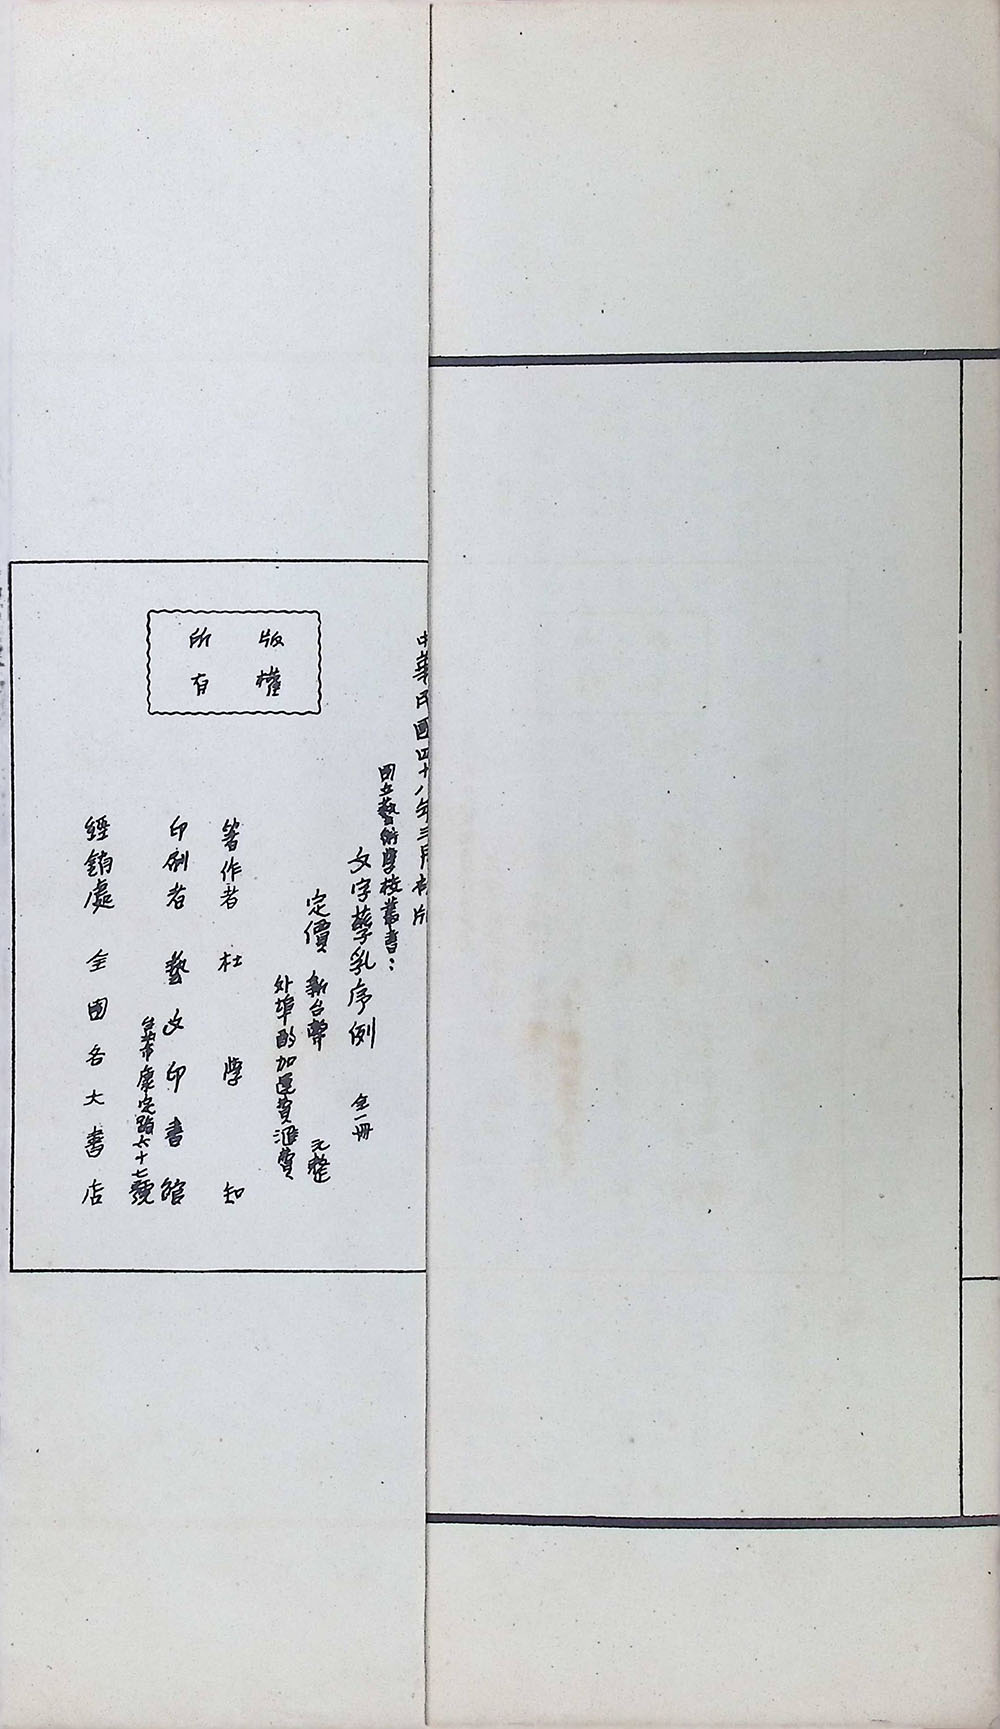 中華民國四十八年三月初版
國立藝術學校叢書：
文字孳乳序例　全一冊
定價　新台幣　元整
外埠酌加運費滙費
版權
所有
著作者　杜學知
印刷者　藝文印書館
台北市康定路六十七號
經銷處　全國各大書店